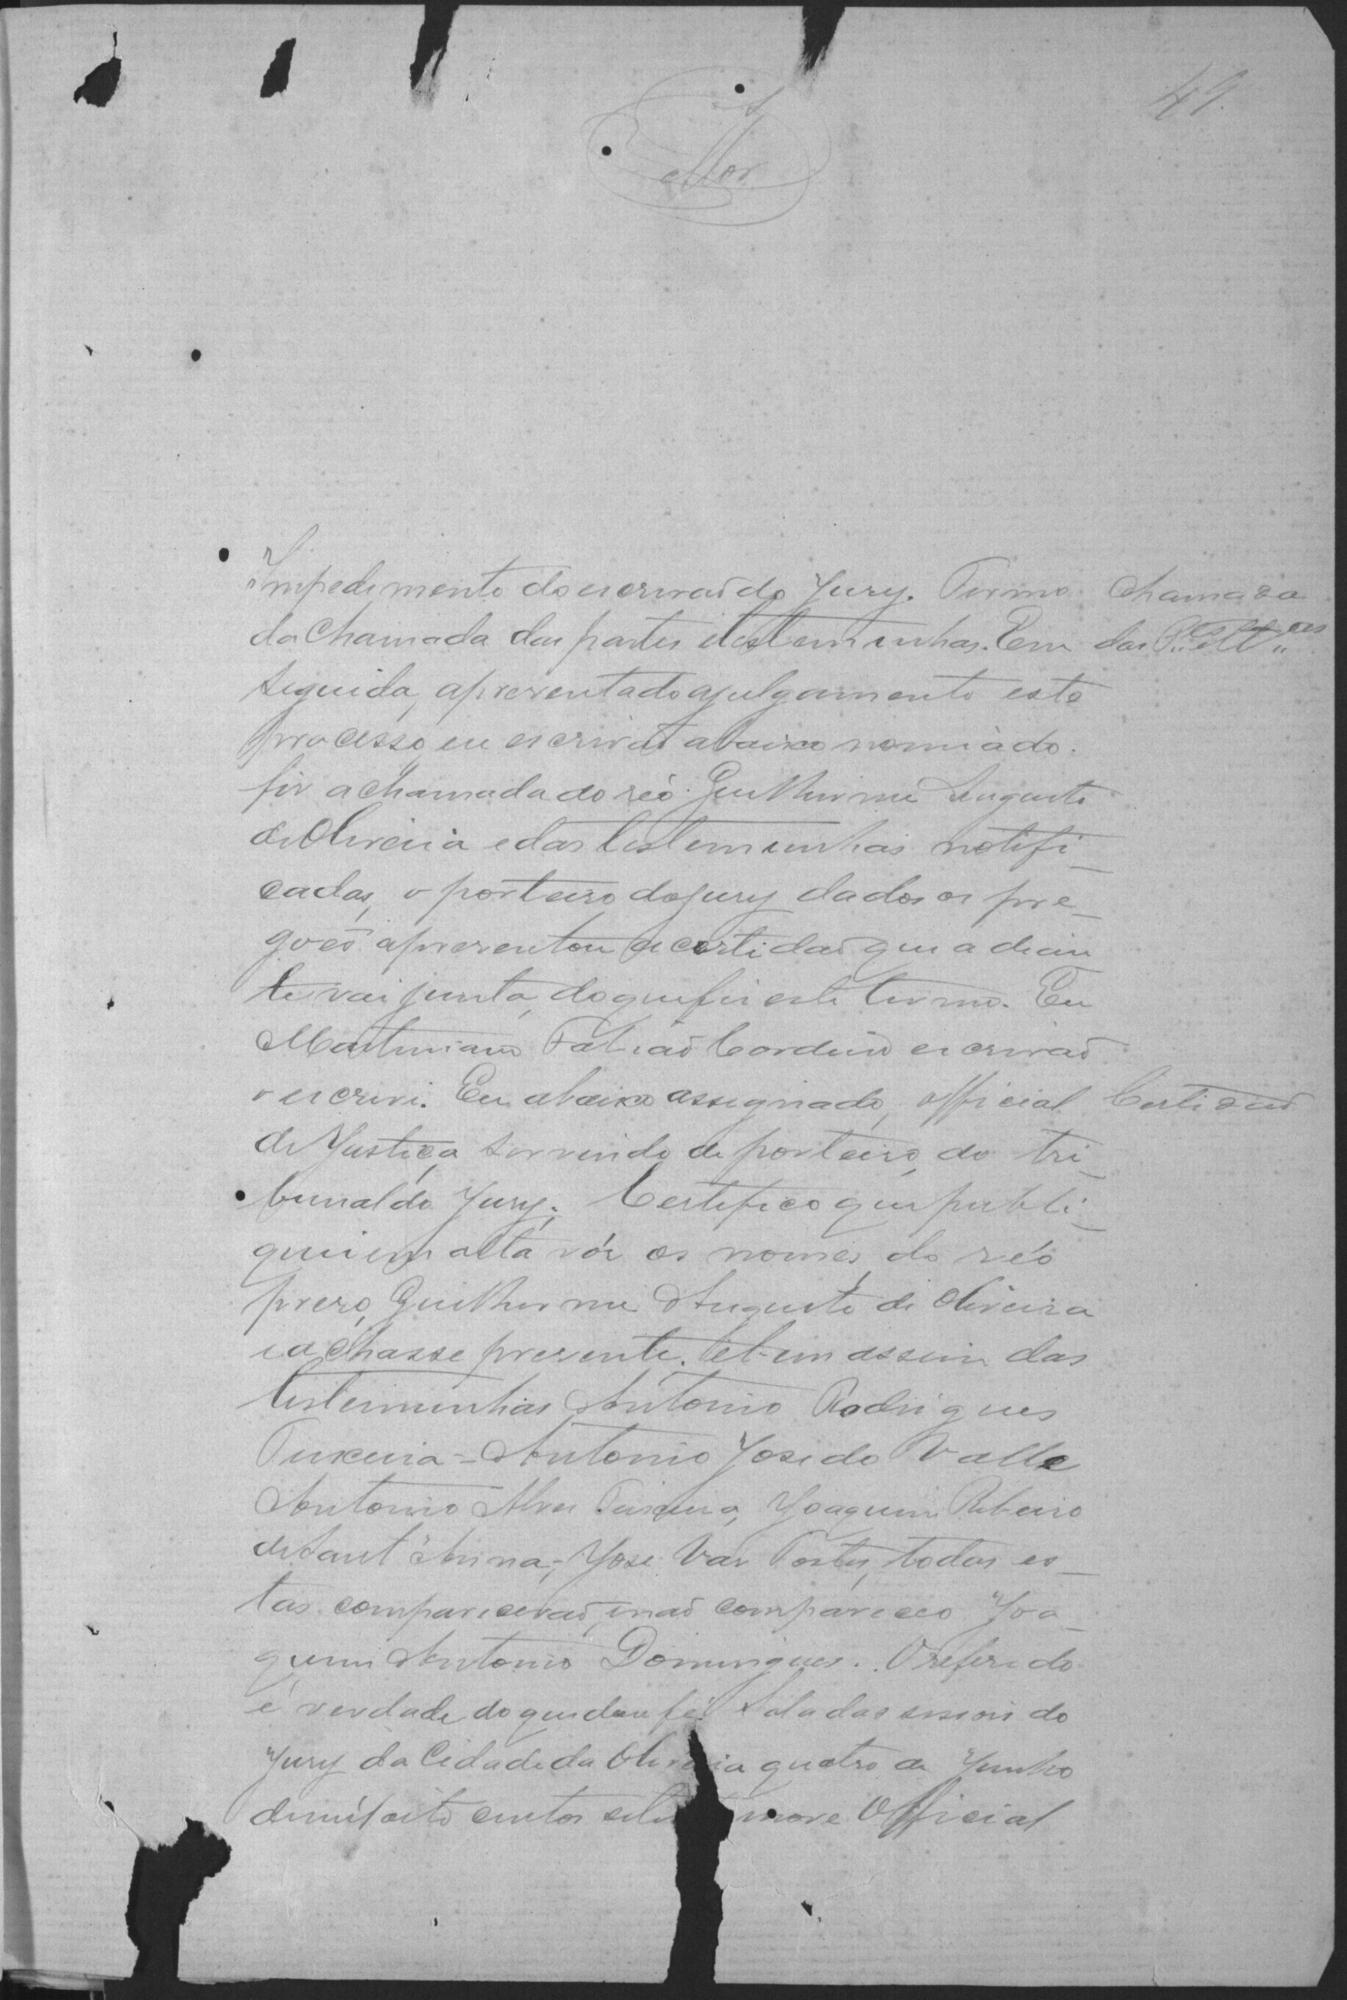 49.
Impedimento do escrivaõ do Jury. Termo
Chamada
da Chamada das partes e testemunhas. Em
das P.es e tt.as
seguida, apresentado a julgamento este
processo, eu escrivaõ abaixo nomiado
fis a chamada do réo Guilherme Augusto
de Oliveira e das testemunhas notifi_
cadas, o porteiro do Jury dados os pre_
goẽs apresentou a certidaõ que a dian
te vai junta, do que fis este termo. Eu
Martiniano Fabiaõ Cordeiro escrivaõ
o escrevi. Eu abaixo assignado, official
Certidaõ
de Justiça, servindo de porteiro, do tri_
bunal do Jury; Certifico que publi_
quei em alta vós os nomes do réo
prezo, Guilherme Augusto de Oliveira
e achasse prezente, e bem assim das
testemunhas Antonio Rodrigues
Teixeira = Antonio José do Valle
Antonio Alves Teixeira, Joaquim Ribeiro
de Sant'Anna, José Vas Porto, todas es_
tas compareceraõ, e naõ compareceo Joa_
quim Antonio Domingues. O referido
é verdade do que dou fé. Sala das sessoẽs do
Jury da Cidade da Oliveira quatro de Junho
de mil oito centos setenta nove Official